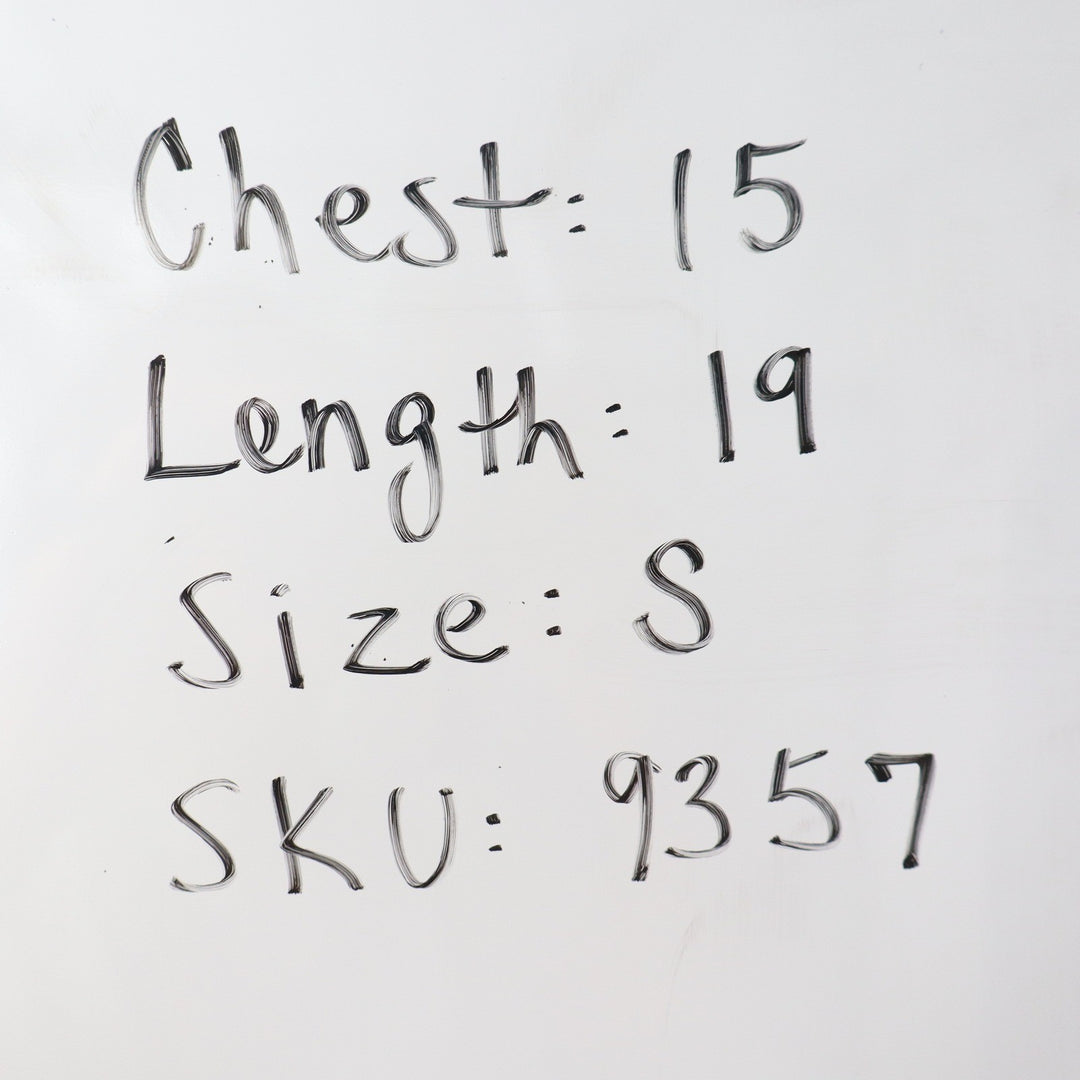 Chest: 15
Length: 19
Size: S
SKU: 9357